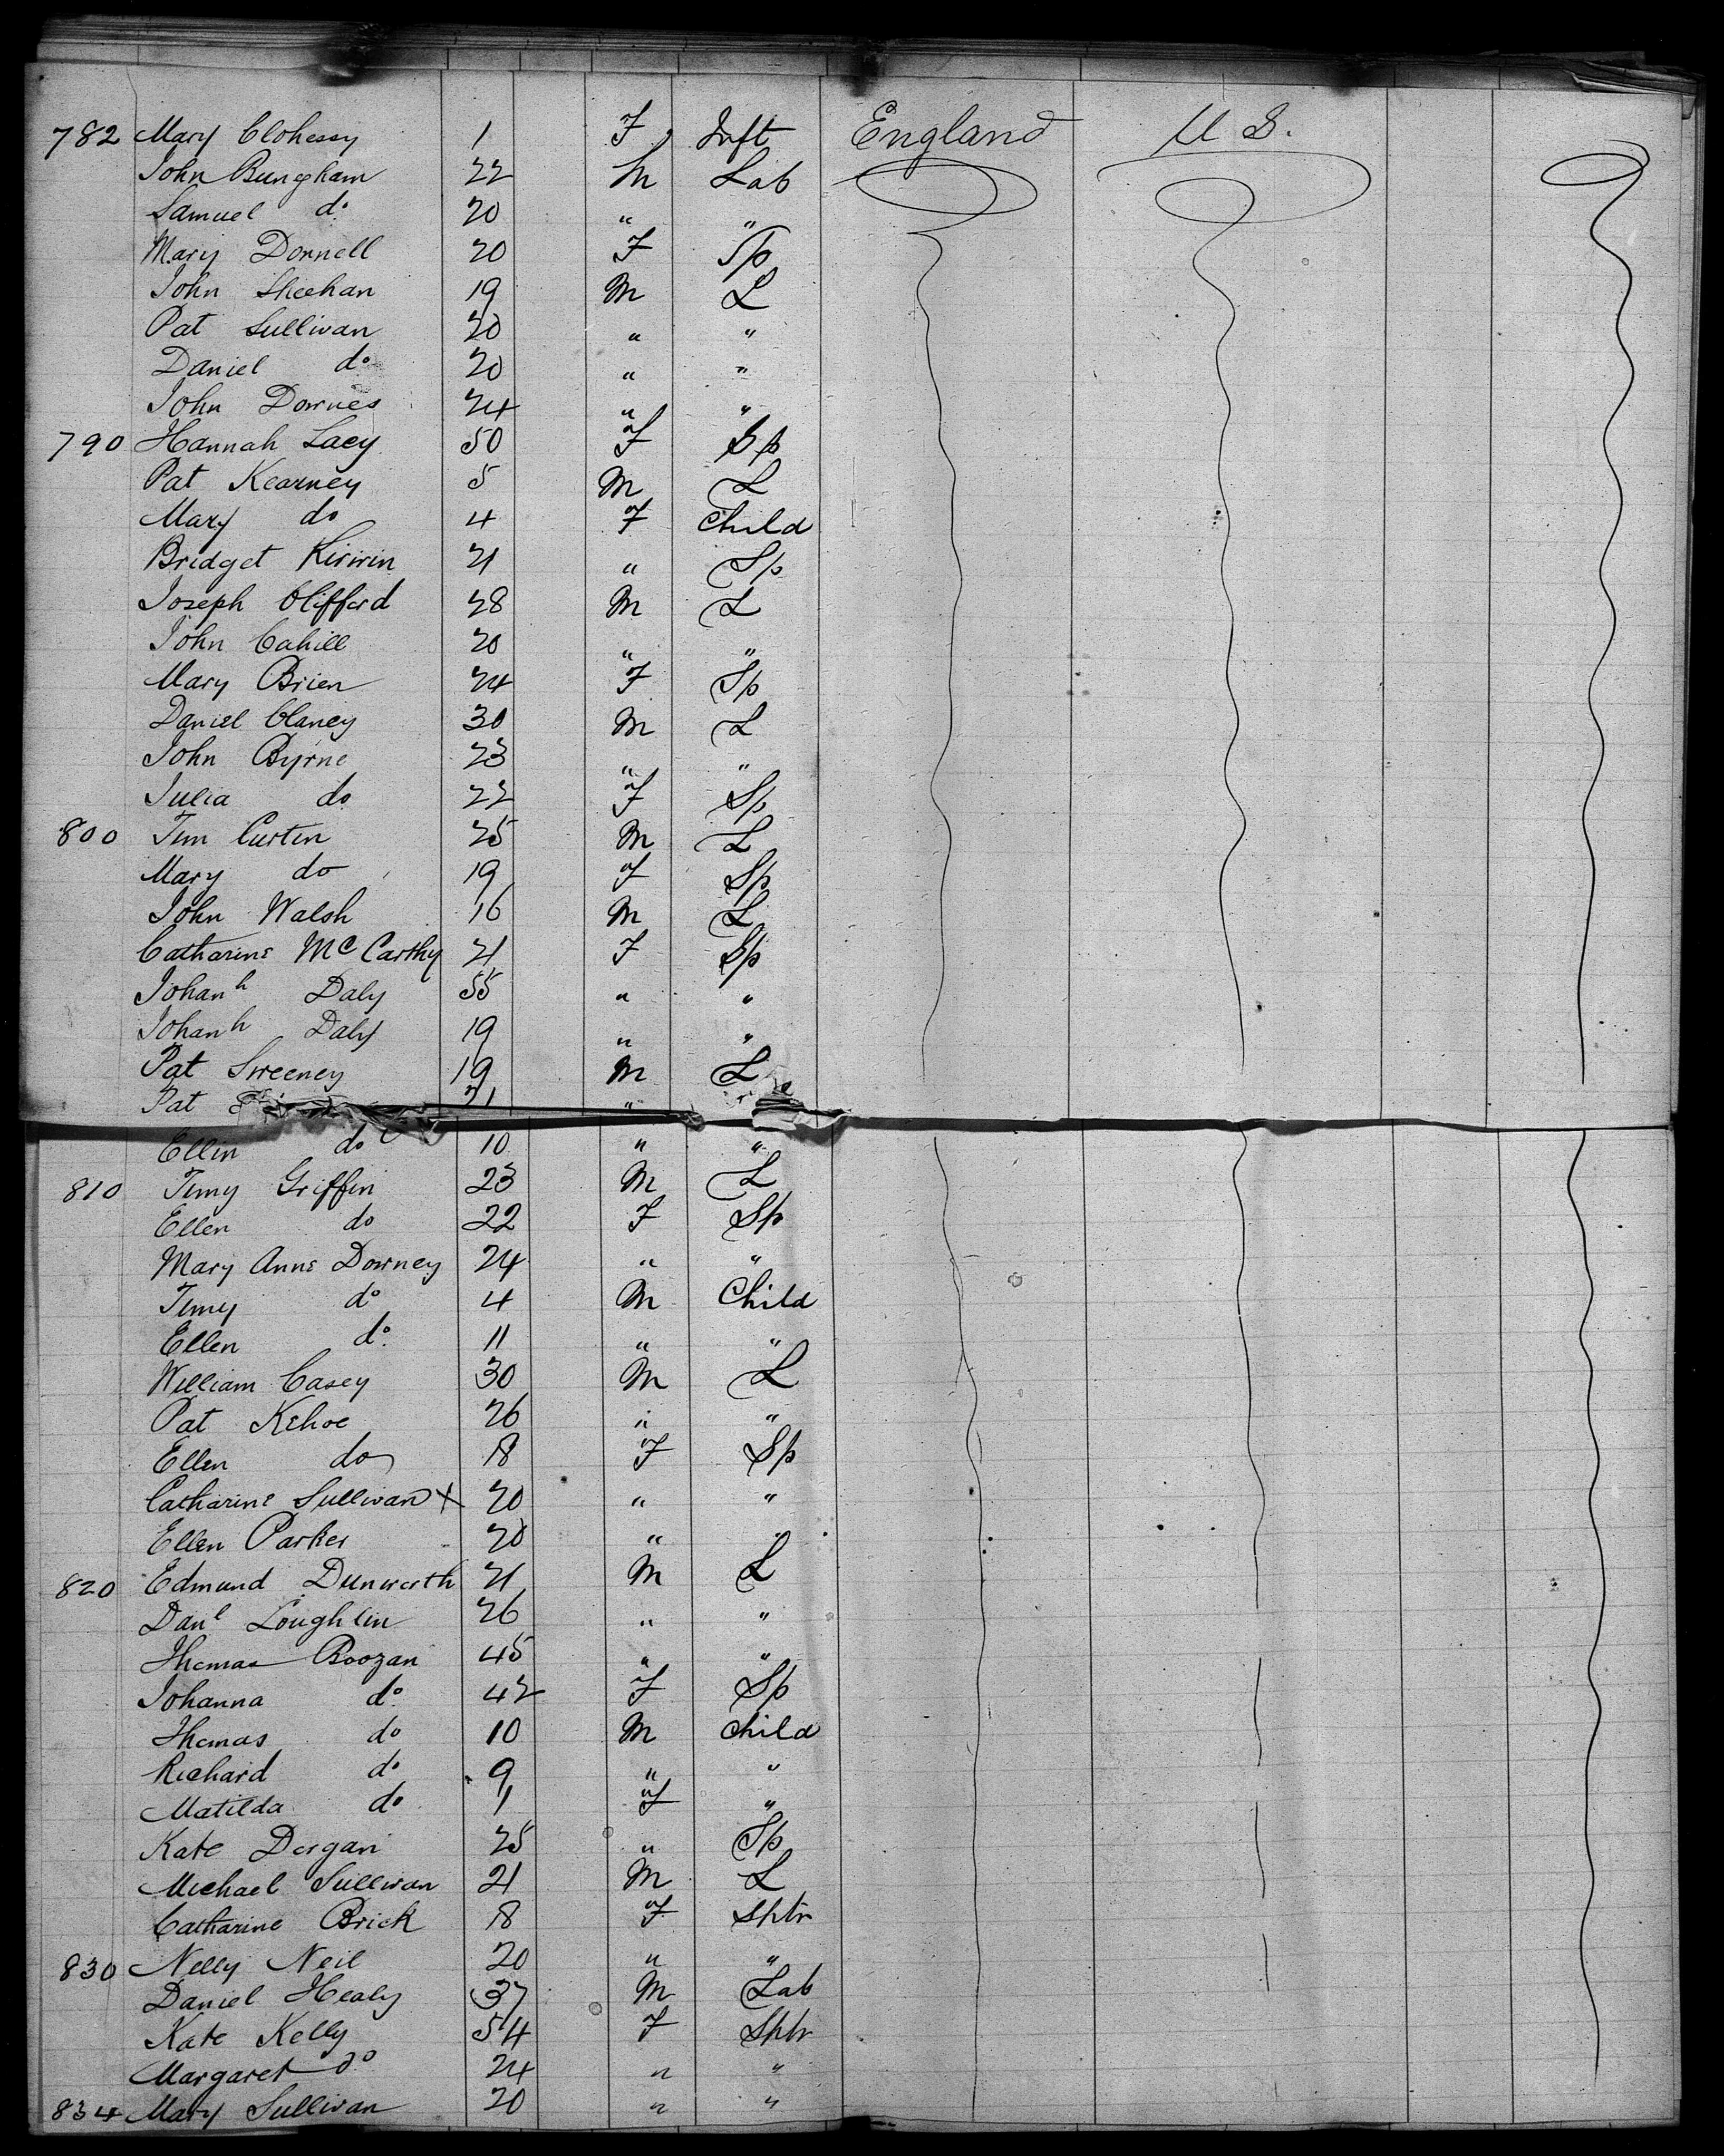 782 Mary Clohessy 1 F Inft England U S.
John Bungham 22 M Lab
Samuel do 20 " "
Mary Donnell 20 F Sp
John Sheehan 19 M L
Pat Sullivan 20 " "
Daniel do 20 " "
John Downes 24 " "
790 Hannah Lacy 50 F Sp
Pat Kearney 5 M L
Mary do 4 F Child
Bridget Kirwin 21 " Sp
Joseph Clifford 28 M L
John Cahill 20 " "
Mary Brien 24 F Sp
Daniel Clancy 30 M L
John Byrne 23 " "
Julia do 22 F Sp
800 Tim Curtin 25 M L
Mary do 19 F Sp
John Walsh 16 M L
Catharine McCarthy 21 F Sp
Johanh Daly 55 " "
Johanh Daly 19 " "
Pat Sweeney 19 M L
Pat 21 "
Ellin do 10 " "
810 Timy Griffin 23 M L
Ellen do 22 F Sp
Mary Anne Downey 24 " "
Timy do 4 M Child
Ellen do 11 " "
William Casey 30 M L
Pat Kehoe 26 " "
Ellen do 18 F Sp
Catharine Sullivan X 20 " "
Ellen Parker 20 " "
820 Edmund Dunworth 21 M L
Danl Loughlin 26 " "
Thomas Boozan 45 " "
Johanna do 42 F Sp
Thomas do 10 M Child
Richard do 9 " "
Matilda do 1 F "
Kate Dorgan 25 " Sp
Michael Sullivan 21 M L
Catharine Brick 18 F Sptr
830 Nelly Neil 20 " "
Daniel Healy 37 M Lab
Kate Kelly 54 F Sptr
Margaret do 24 " "
834 Mary Sullivan 20 " "